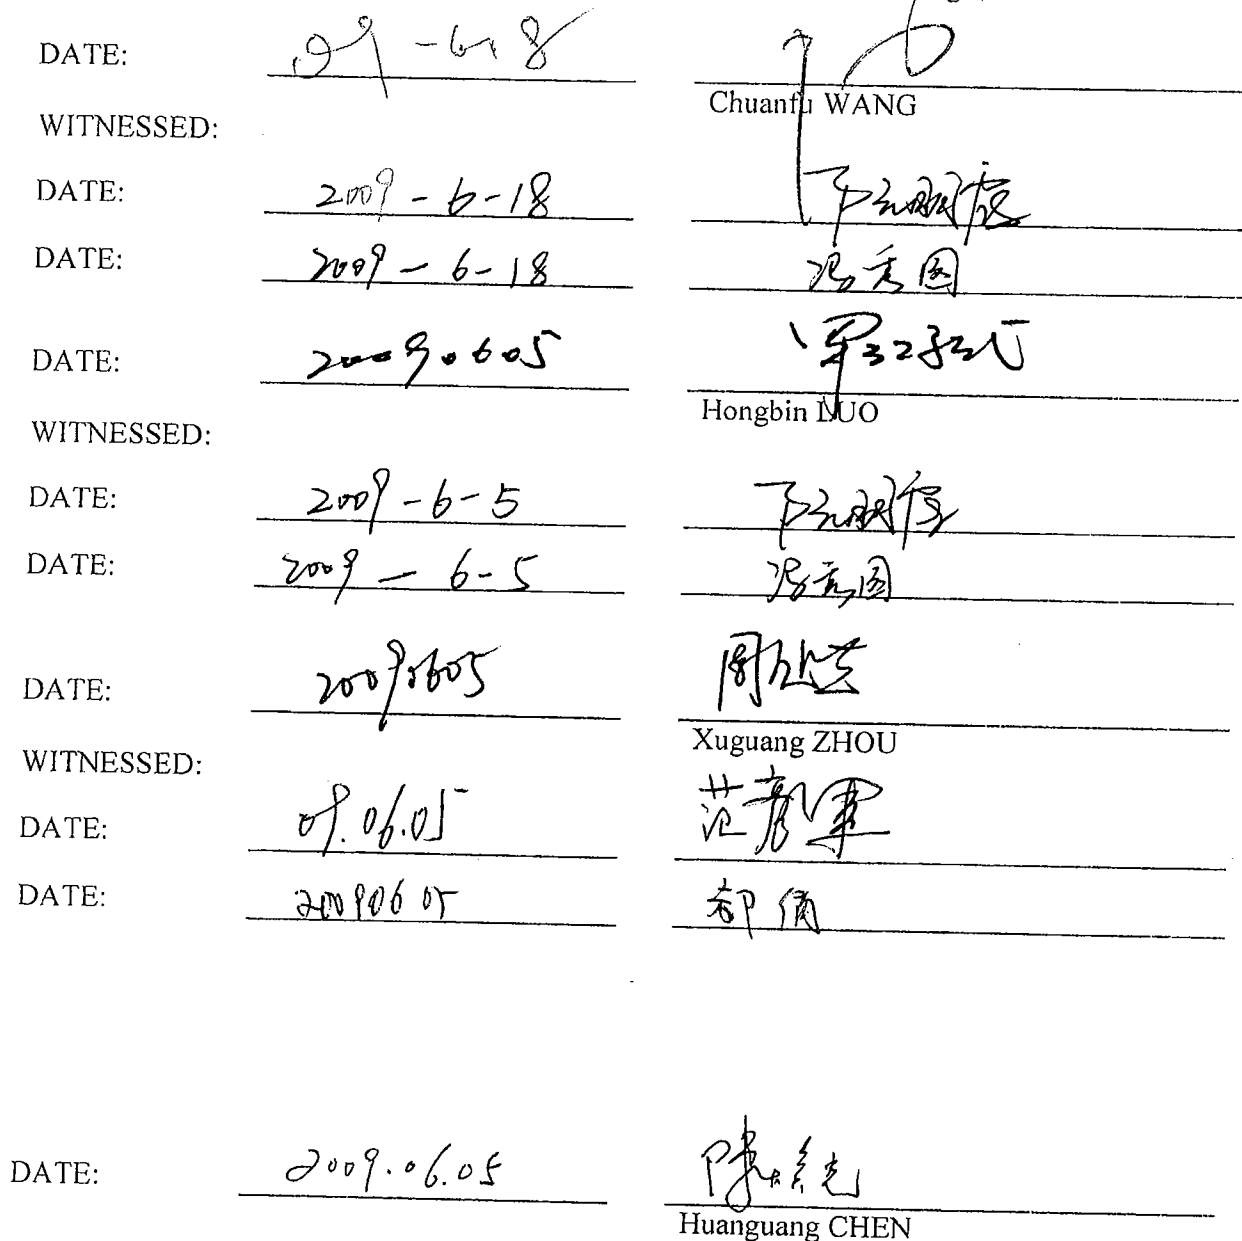 DATE: 09-6-18
Chuanfu WANG
WITNESSED:
DATE: 2009-6-18
DATE: 2009-6-18 冯秀图
DATE: 2009.06.05
Hongbin LUO
WITNESSED:
DATE: 2009-6-5
DATE: 2009-6-5 冯秀图
DATE: 20090605
Xuguang ZHOU
WITNESSED:
DATE: 09.06.05 范彦军
DATE: 20090605 郝倩
DATE: 2009.06.05
Huanguang CHEN